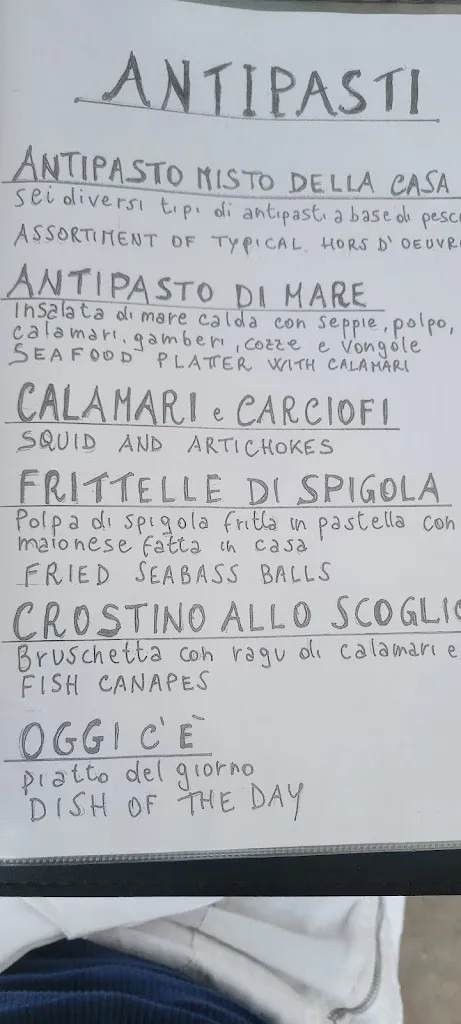 ANTIPASTI
ANTIPASTO MISTO DELLA CASA
sei diversi tipi di antipasti a base di pesc
ASSORTIMENT OF TYPICAL HORS D'OEUVR
ANTIPASTO DI MARE
Insalata di mare calda con seppie, polpo,
calamari, gamberi, cozze e vongole
SEAFOOD PLATTER WITH CALAMARI
CALAMARI e CARCIOFI
SQUID AND ARTICHOKES
FRITTELLE DI SPIGOLA
Polpa di spigola fritta in pastella con
maionese fatta in casa
FRIED SEABASS BALLS
CROSTINO ALLO SCOGLIO
Bruschetta con ragu di calamari e
FISH CANAPES
OGGI C'È
piatto del giorno
DISH OF THE DAY